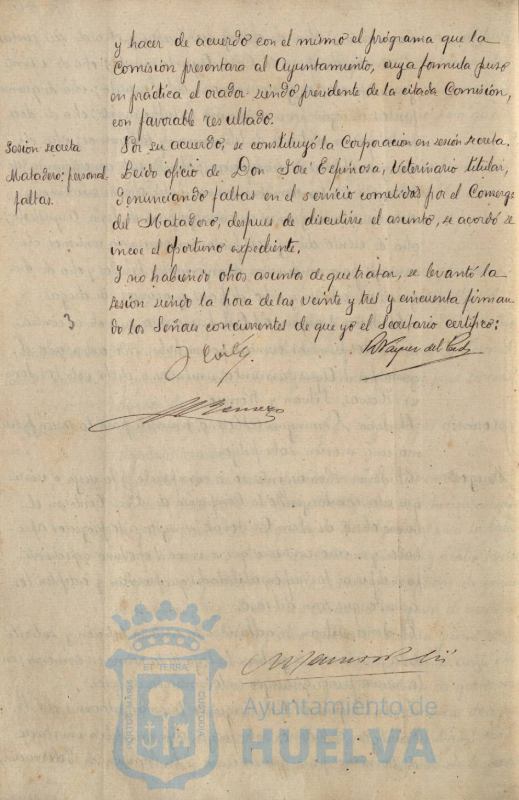 y hacer de acuerdo con el mismo el programa que la
Comisión presentara al Ayuntamiento, cuya formula puso
en práctica el orador siendo presidente de la citada Comisión,
con favorable resultado.
Sesión secreta
Por su acuerdo, se constituyó la Corporación en sesión secreta.
Matadero: personal
faltas.
Leido oficio de Don José Espinosa, Veterinario titular,
denunciando faltas en el servicio cometidas por el Conserge
del Matadero, despues de discutirse el asunto, se acordó se
incoe el oportuno expediente.
Y no habiendo otros asuntos de que tratar, se levantó la
sesión siendo la hora de las veinte y tres y cincuenta firman
3
do los Señores concurrentes de que yo el Secretario certifico:
ET TERRÆ
PORTUS MARIS
CUSTODIA
Ayuntamiento de
HUELVA